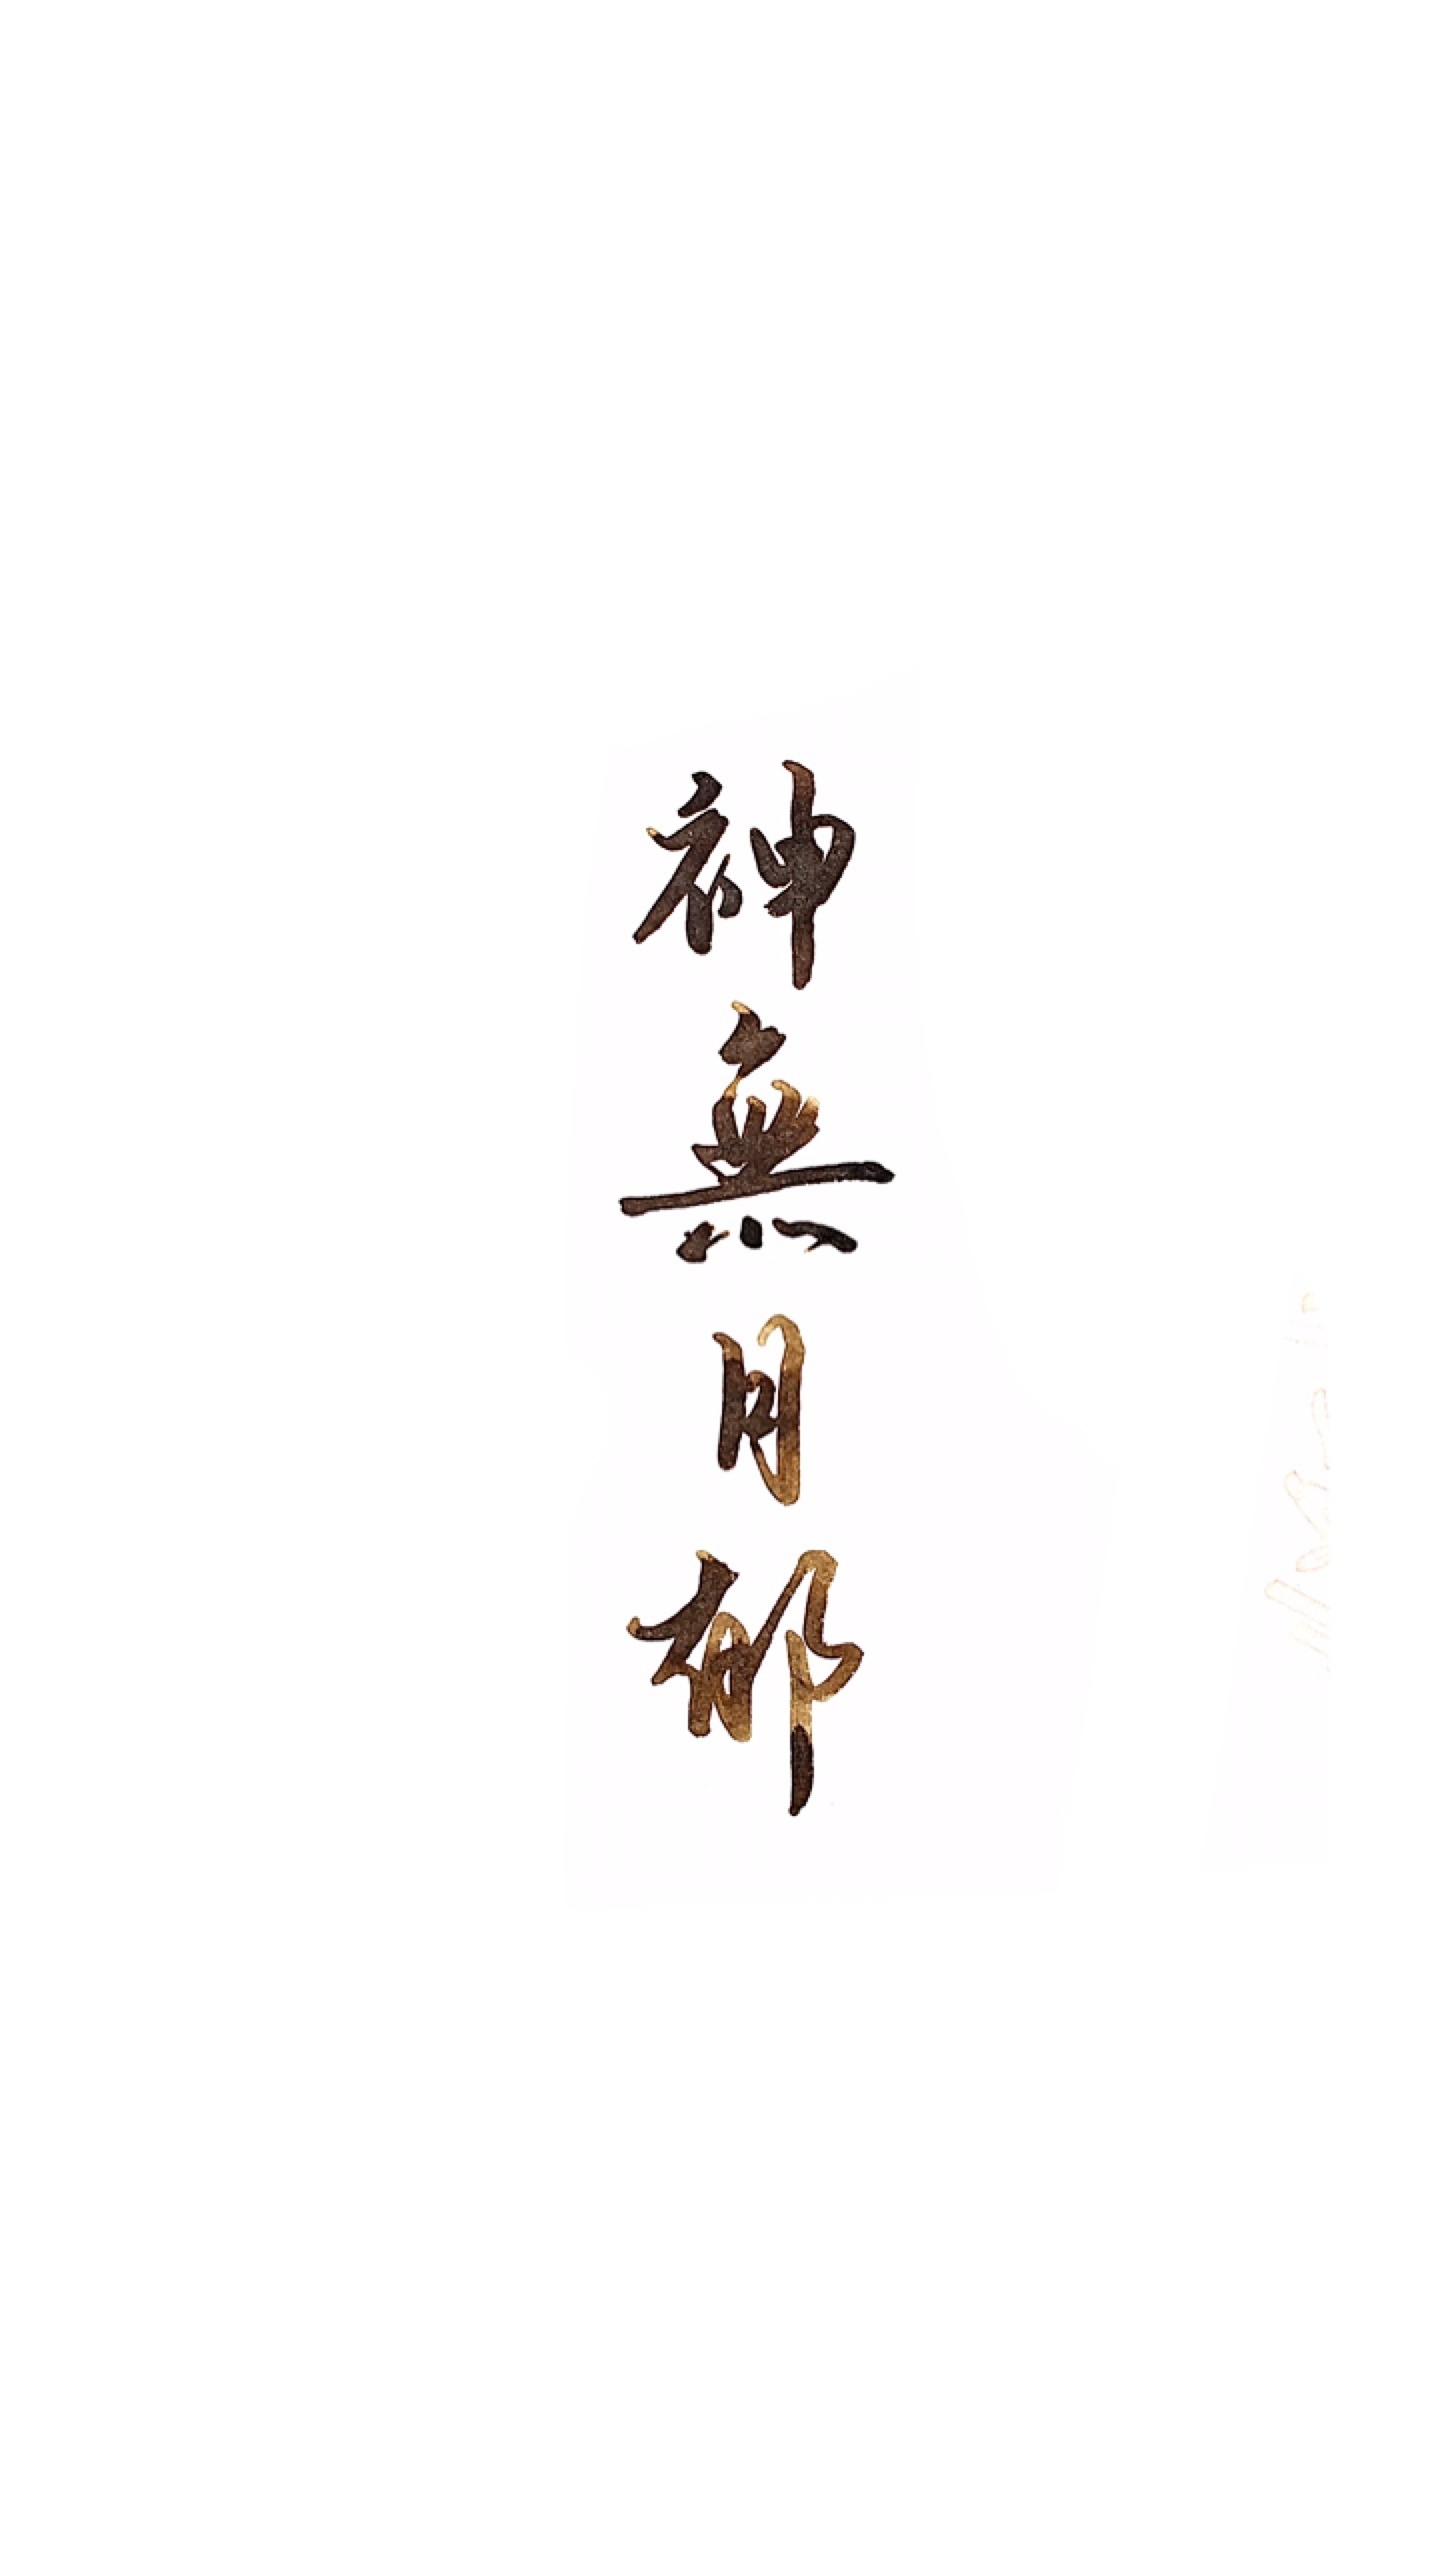 神無月郁